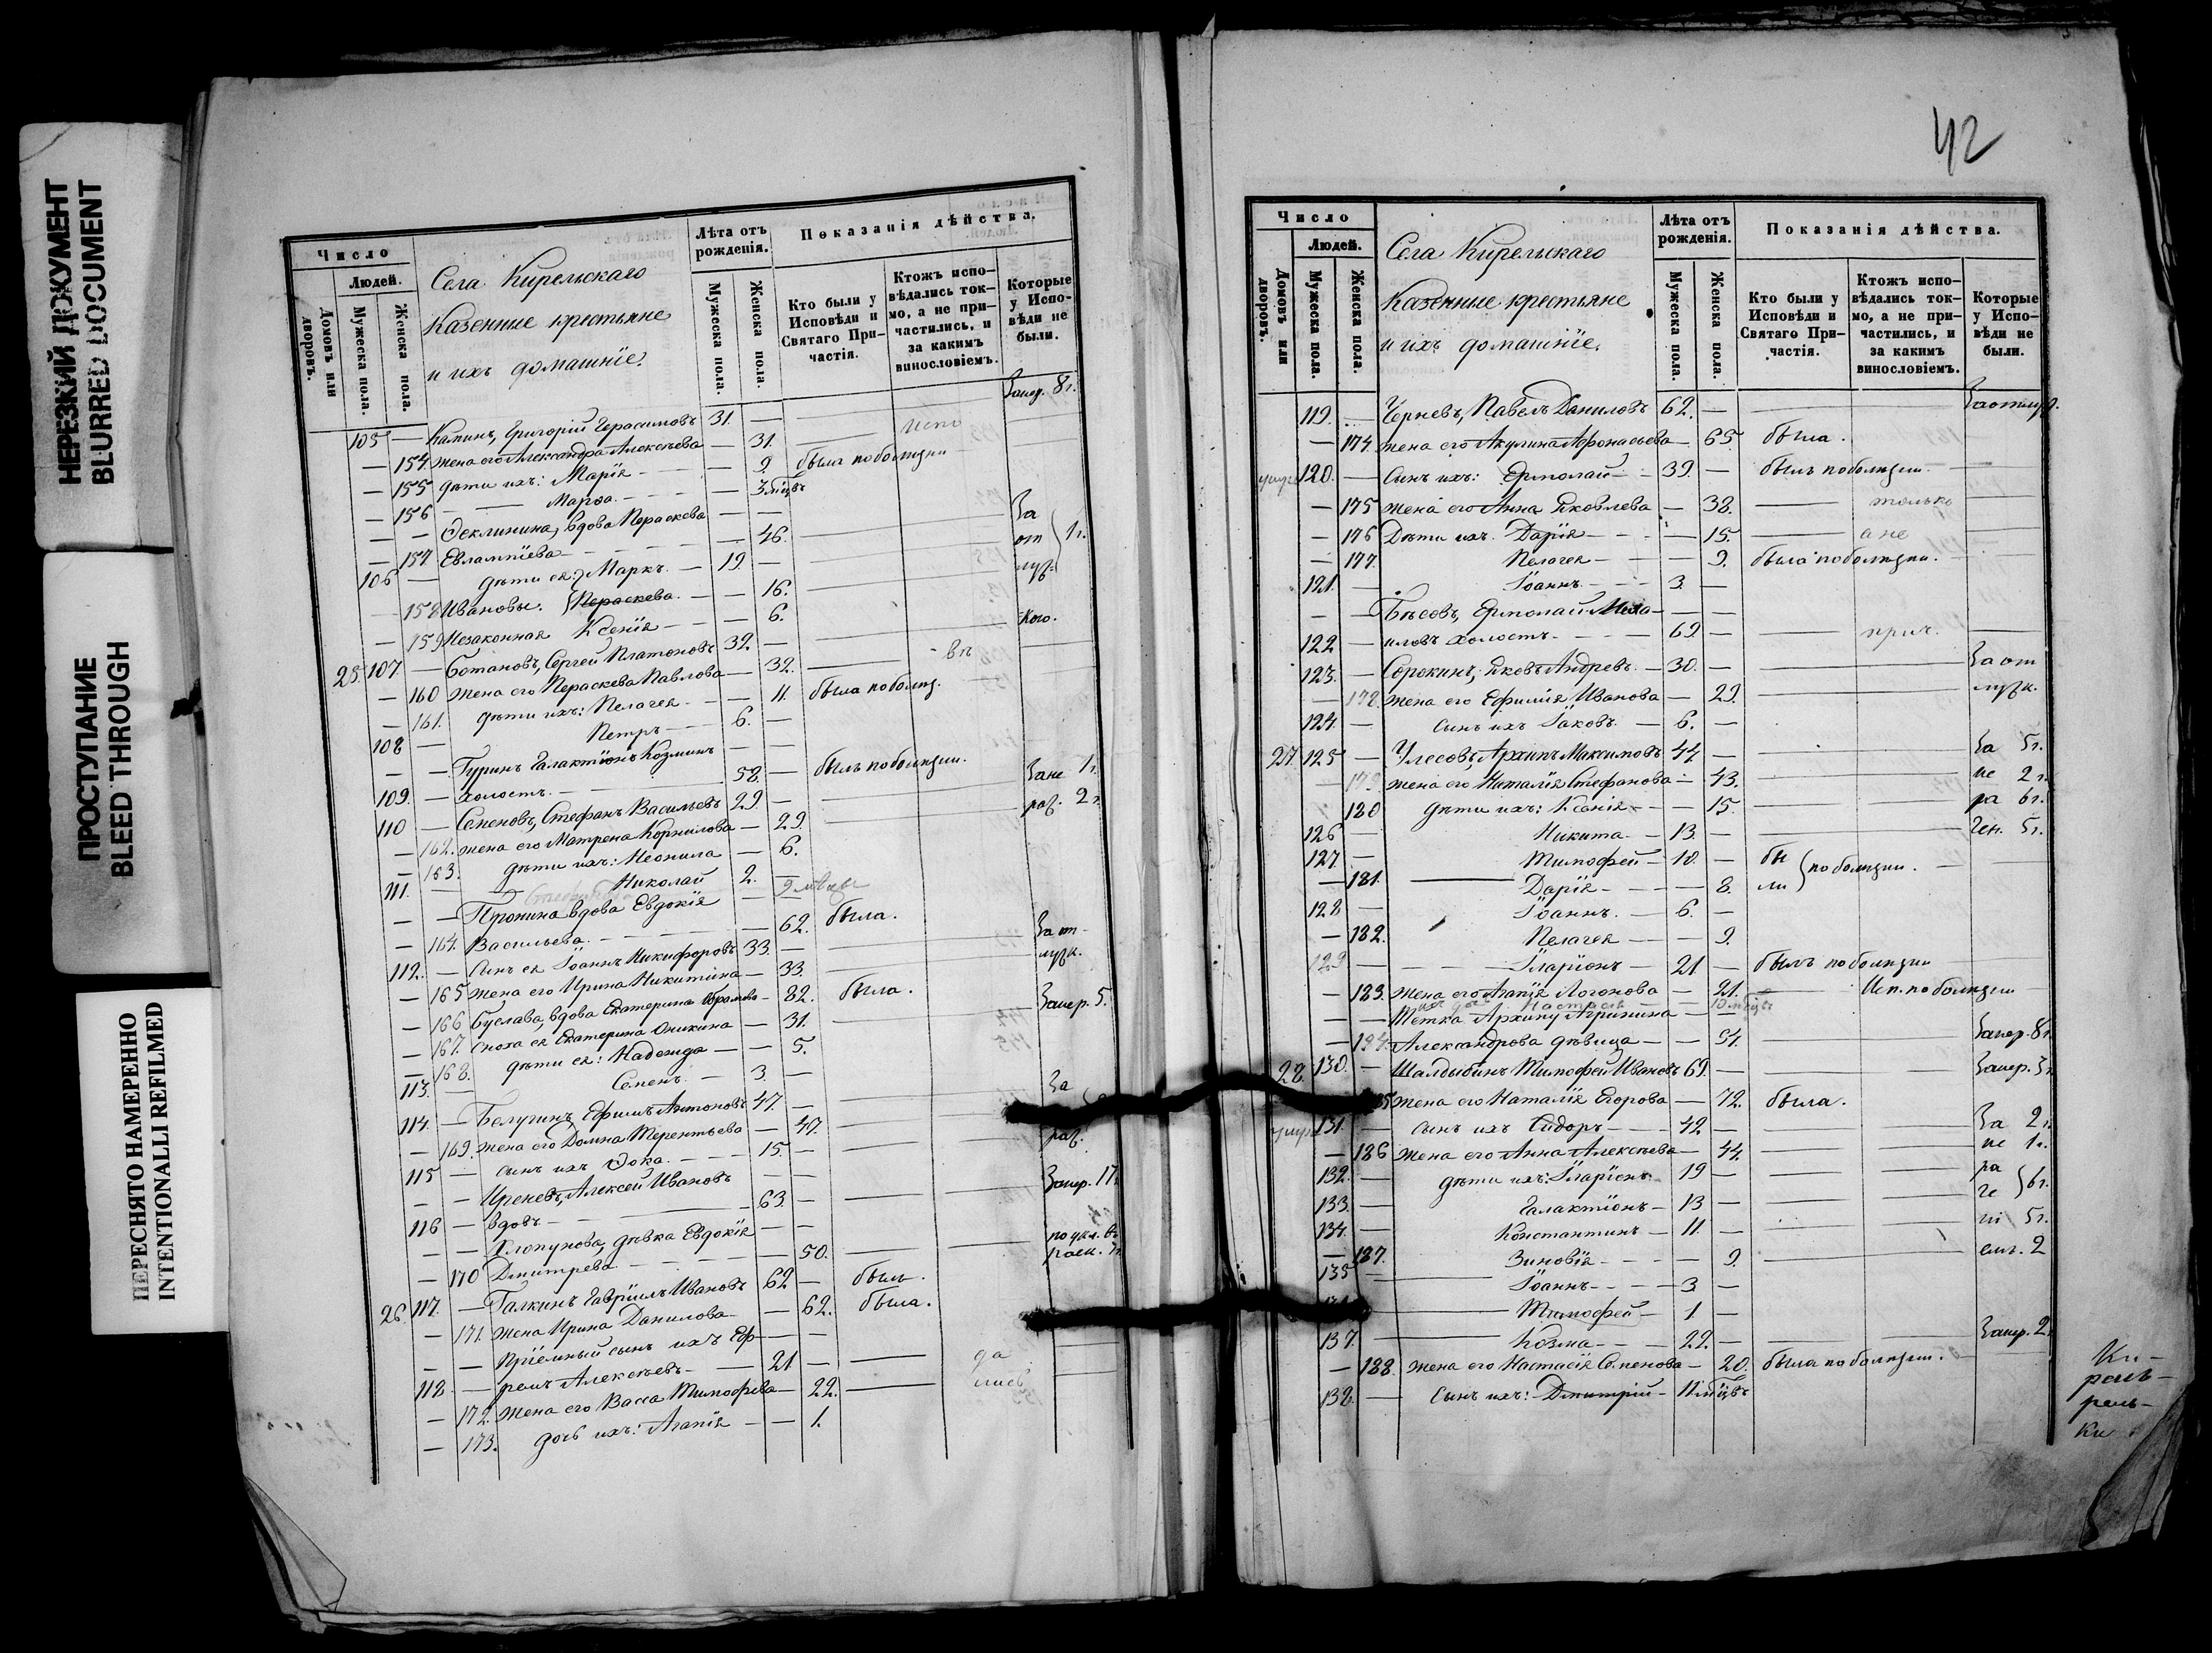 НЕРЕЗКИЙ ДОКУМЕНТ
BLURRED DOCUMENT
ПРОСТУПАНИЕ
BLEED THROUGH
ПЕРЕСНЯТО НАМЕРЕННО
INTENTIONALLI REFILMED
Число
Людей.
Домовъ или дворовъ.
Мужеска пола.
Женска пола.
Села Кирельскаго
Казенные крестьяне
и ихъ домашніе.
Лѣта отъ рожденія.
Мужеска пола.
Женска пола.
Показанія дѣйства.
Кто были у Исповѣди и Святаго Причастія.
Ктожъ исповѣдались токмо, а не причастились, и за какимъ винословіемъ.
Которые у Исповѣди не были.
105 — Каминъ, Григорій Герасимовъ 31. — Занер. 8 г.
— 154 жена его Александра Алексѣева — 31. Испо
— 155 дѣти ихъ: Марія — 9. была по болѣзни
— 156 Марѳа — 3 мѣцъ
— — Ѳеклинина, вдова Параскева — —
— 157 Евлампіева — 46. За от луч. 1 г.
106 — дѣти ея: Маркъ. — 19. —
— 158 Ивановы. Параскева. — 16.
— 159 Незаконная Ксенія — 6.
25. 107. — Ботановъ, Сергей Платоновъ 32. — Кого.
— 160 жена его Параскева Павлова — 32. въ
— 161. дѣти ихъ: Пелагея — 11 была по болѣз.
108 — Петръ 6. —
— — Гуринъ Галактіонъ Козминъ — —
109. — холостъ. 58. — былъ по болѣзни.
110 — Семеновъ, Стефанъ Васильевъ 29. — Зане 1 г.
— 162. жена его Матрена Корнилова — 29. рач. 2 г.
— 163. дѣти ихъ: Неонила — 6.
111. — Николай 2. —
— — Пронина вдова Евдокія — —
— 164. Васильева. — 62. была.
112. — Сынъ ея Іоаннъ Никифоровъ 33. — За от-
— 165 жена его Ирина Никитина — 33. луч.
— 166 Буслава, вдова Екатерина Абрамова — 82. была.
— 167. сноха ея Екатерина Оникина — 31. Занер. 5.
— 168. дѣти ея: Надежда — 5.
113. — Семенъ. 3. —
114. — Белугинъ, Ефимъ Антоновъ 47. — За
— 169. жена его Домна Терентьева — 47.
115 — сынъ ихъ Ѳока. 15. — рач.
— — Иреневъ, Алексей Ивановъ — —
116 — вдовъ 63. — Занер. 17.
— — Хлопунова, дѣвка Евдокія — —
— 170 Дмитрева — 50.
26. 117. — Галкинъ Гавріилъ Ивановъ 62 — былъ.
— 171. жена Ирина Данилова — 62. была.
— — Пріемный сынъ ихъ Еф- — —
118. — ремъ Алексѣевъ — 21 — да
— 172. жена его Васса Тимофѣева — 22. лись
— 173. дочь ихъ: Агапія — 1.
42
Число
Людей.
Домовъ или дворовъ.
Мужеска пола.
Женска пола.
Села Кирельскаго
Казенные крестьяне
и ихъ домашніе.
Лѣта отъ рожденія.
Мужеска пола.
Женска пола.
Показанія дѣйства.
Кто были у Исповѣди и Святаго Причастія.
Ктожъ исповѣдались токмо, а не причастились, и за какимъ винословіемъ.
Которые у Исповѣди не были.
119. — Черневъ, Павелъ Даниловъ 62. — За отлуч.
— 174. жена его Акулина Афонасьева — 65. была.
120. — Сынъ ихъ: Ермолай — 39. — былъ по болѣзни.
— 175 жена его Анна Яковлева — 38. только
— 176 Дѣти ихъ. Дарія — 15. а не
— 177. Пелагея — 9. была по болѣзни.
121. — Іоаннъ. 3. —
— — Бѣсовъ, Ермолай — —
122 — иловъ холостъ. — 69. — прич.
123. — Сорокинъ, Яковъ Андревъ. — 30. — За от
— 178. жена его Ефимія Иванова — 29. луч.
124. — сынъ ихъ Іаковъ. — 6. —
27. 125 — Улесовъ, Архипъ Максимовъ 44 — За 5 г.
— 179. жена его Наталія Стефанова — 43. не 2 г.
180 дѣти ихъ: Ксенія — 15. ра 6 г.
126 — Никита. — 13. — чен. 5 г.
127 — Тимофей — 10. — бы
— 181. Дарія — 8. ли по болѣзни.
128 — Іоаннъ. — 6. —
— 182. Пелагея — 9.
129 — Іларіонъ — 21 — былъ по болѣзни
— 183. жена его Агапія Логонова — 21. Исп. по болѣзни
— — Тетка Архипу Агрипина — —
— 184. Александрова дѣвица — 54. Занер. 8 г.
28. 130. — Шалдыбинъ Тимофей Ивановъ 69. — Занер. 3 г.
жена его Наталія Егорова — 72. была.
131. — сынъ ихъ Сидоръ — 42 — За 2 г.
— 186 жена его Анна Алексѣева — 44. не 1 г.
132. — дѣти ихъ: Іларіонъ 19 — ра
133. — Галактіонъ — 13 — че 6 г.
134. — Константинъ — 11. — ні 5 г.
— 187. Зиновія — 9. емъ. 2
135 — Іоаннъ — 3 —
Тимофей — 1 —
137. Козма — 22. — Занер. 2.
— 188. жена его Настасія Семенова — 20. была по болѣзни.
138. — сынъ ихъ: Дмитрій — 11 мѣцвъ